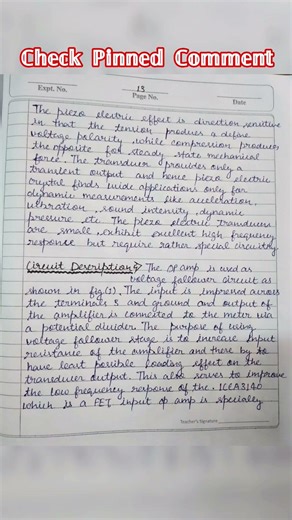 Check Pinned Comment
Expt. No.
13
Page No.
Date
The piezo electric effect is direction sensitive
in that the tension produces a define
voltage polarity while compression produces
the opposite for steady state mechanical
force. The transducer provides only a
transient output and hence piezo electric
crystal finds wide applications only for
dynamic measurements like acceleration,
vibration, sound intensity, dynamic
pressure etc. The piezo electric transducers
are small, exhibit excellent high frequency
response but require rather special circuitry
Circuit Description :- The op amp is used as
voltage follower circuit as
shown in fig (1). The input is impressed across
the terminals 3 and ground and output of
the amplifier is connected to the meter via
a potential divider. The purpose of using
voltage follower stage is to increase input
resistance of the amplifier and there by to
have least possible loading effect on the
transducer output. This also serves to improve
the low frequency response of the. ICCA3140
which is a FET input op amp is specialy
Teacher's Signature